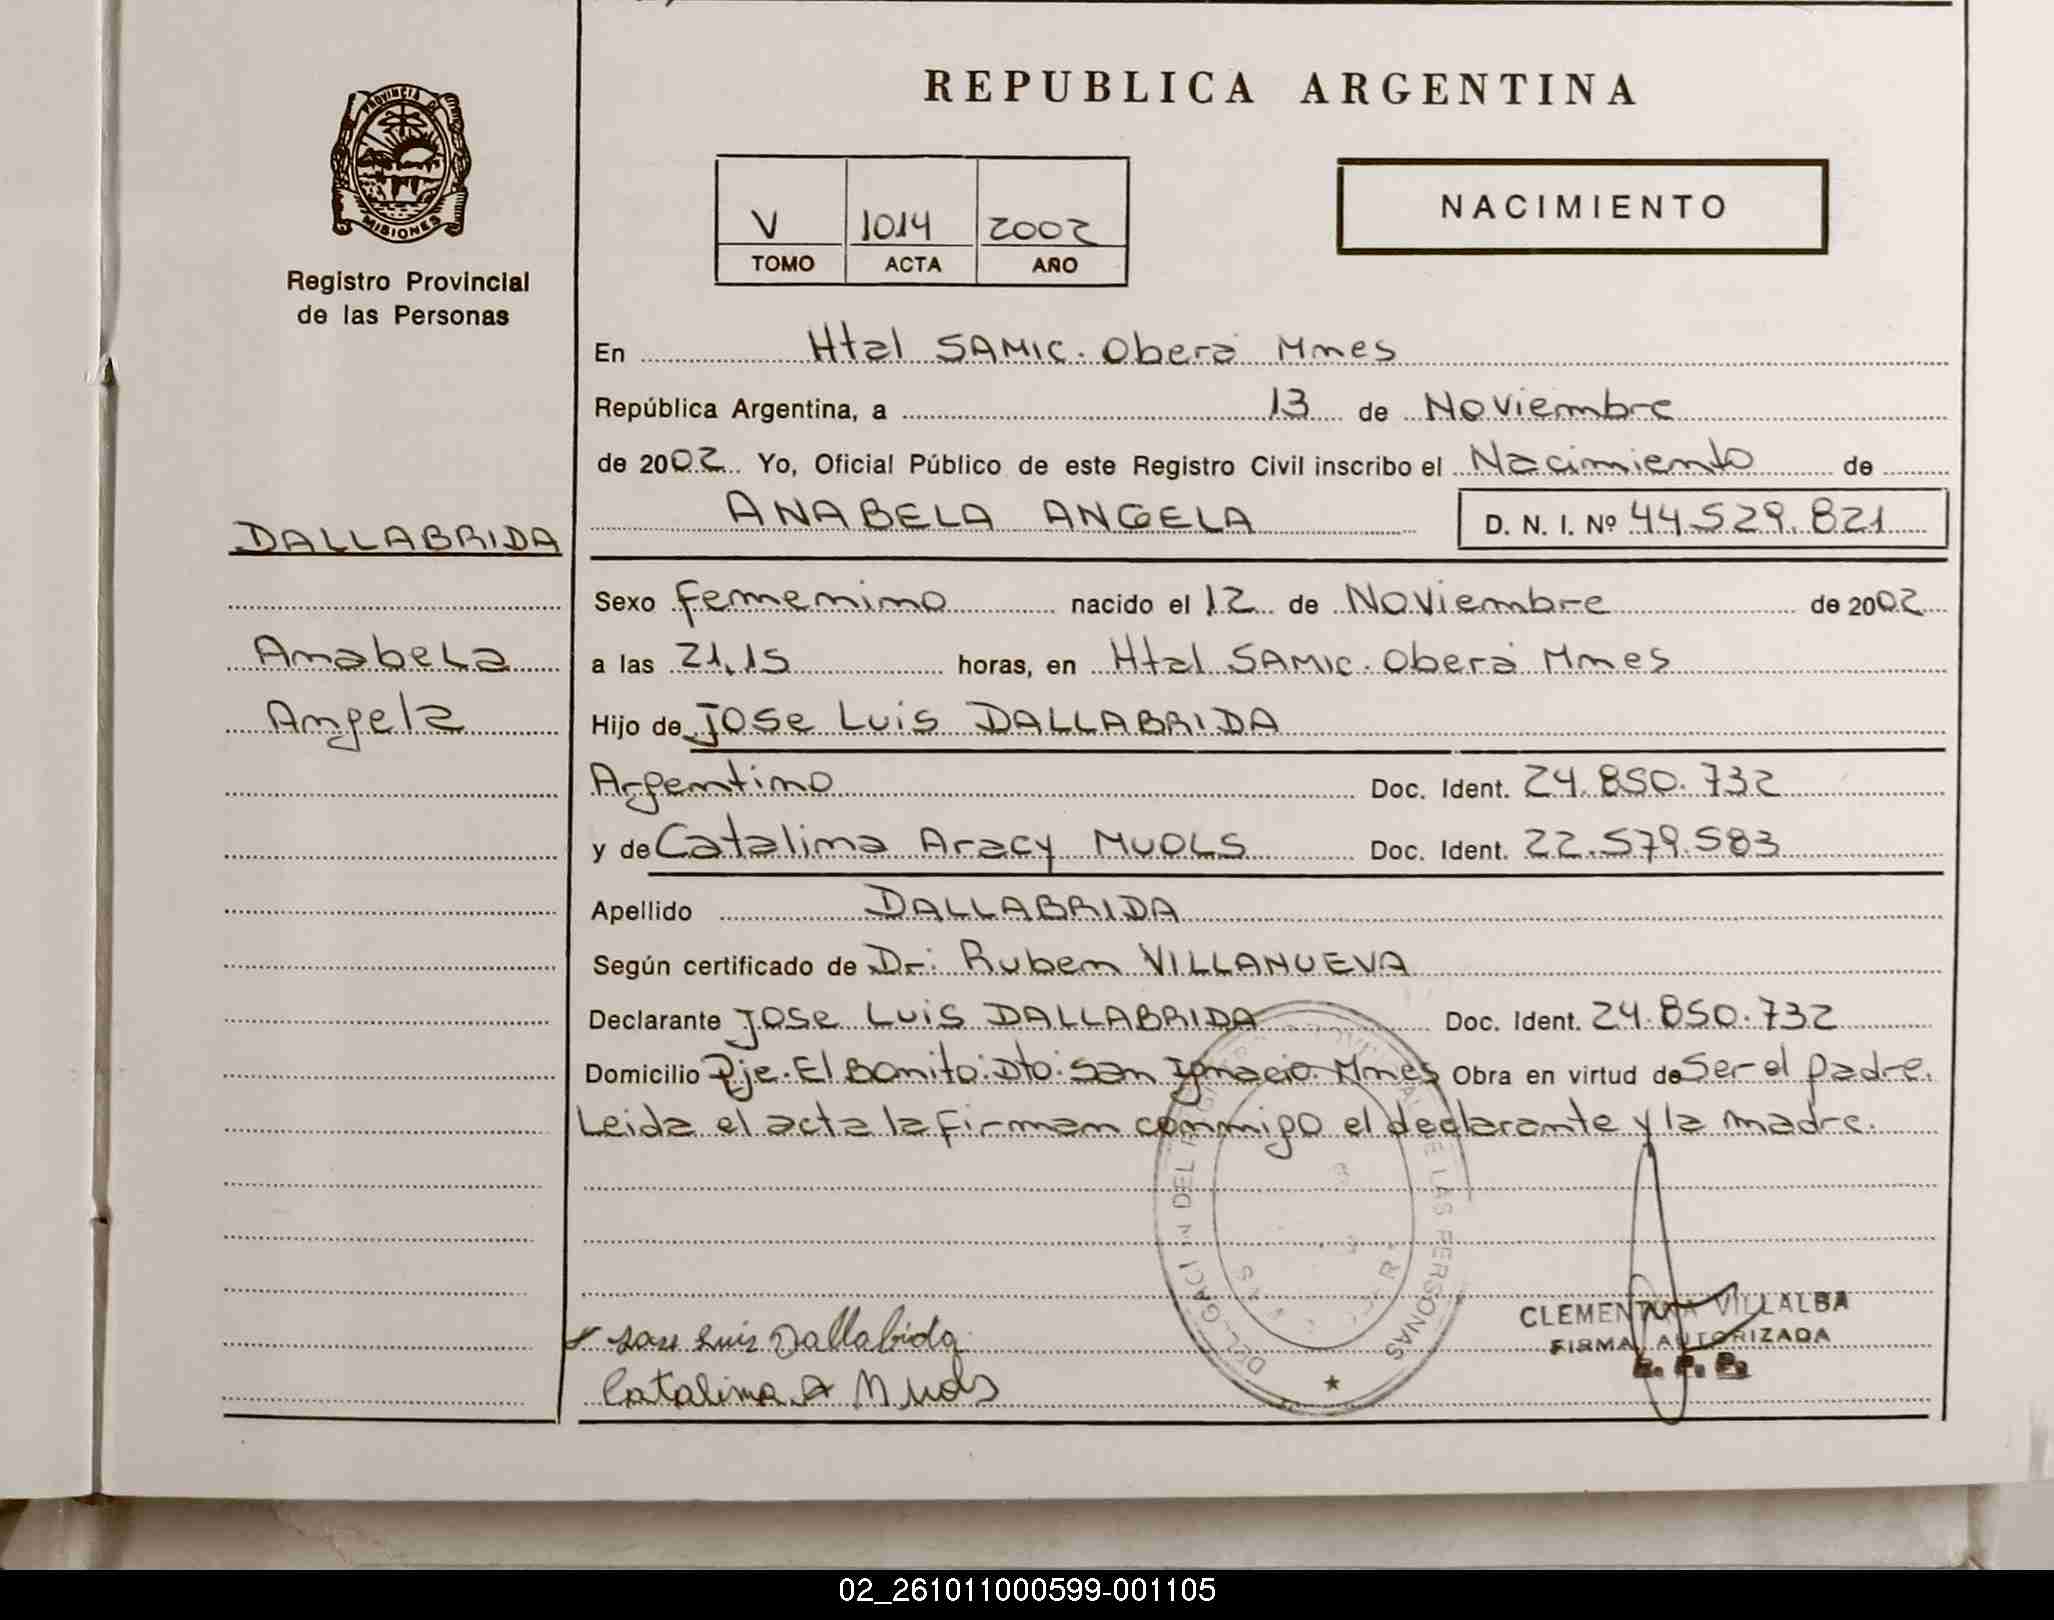 REPUBLICA ARGENTINA
PROVINCIA DE
MISIONES
Registro Provincial
de las Personas
V 1014 2002
TOMO ACTA AÑO
NACIMIENTO
En Htal SAMIC. Oberá Mnes
República Argentina, a 13 de Noviembre
de 2002 Yo, Oficial Público de este Registro Civil inscribo el Nacimiento de
ANABELA ANGELA D. N. I. Nº 44.529.821
DALLABRIDA
Anabela
Angela
Sexo femenino nacido el 12 de Noviembre de 2002
a las 21,15 horas, en Htal SAMIC. Oberá Mnes
Hijo de JOSE LUIS DALLABRIDA
Argentino Doc. Ident. 24.850.732
y de Catalina Aracy MUOLS Doc. Ident. 22.579.583
Apellido DALLABRIDA
Según certificado de Dr: Ruben VILLANUEVA
Declarante JOSE LUIS DALLABRIDA Doc. Ident. 24.850.732
Domicilio Pje. El Bonito. Dto. San Ignacio. Mnes Obra en virtud de Ser el padre.
Leida el acta la firman conmigo el declarante y la madre.
DE LAS PERSONAS
Jose Luis Dallabrida
Catalina A Muols
CLEMENTINA VILLALBA
FIRMA AUTORIZADA
R. P. P.
02_261011000599-001105